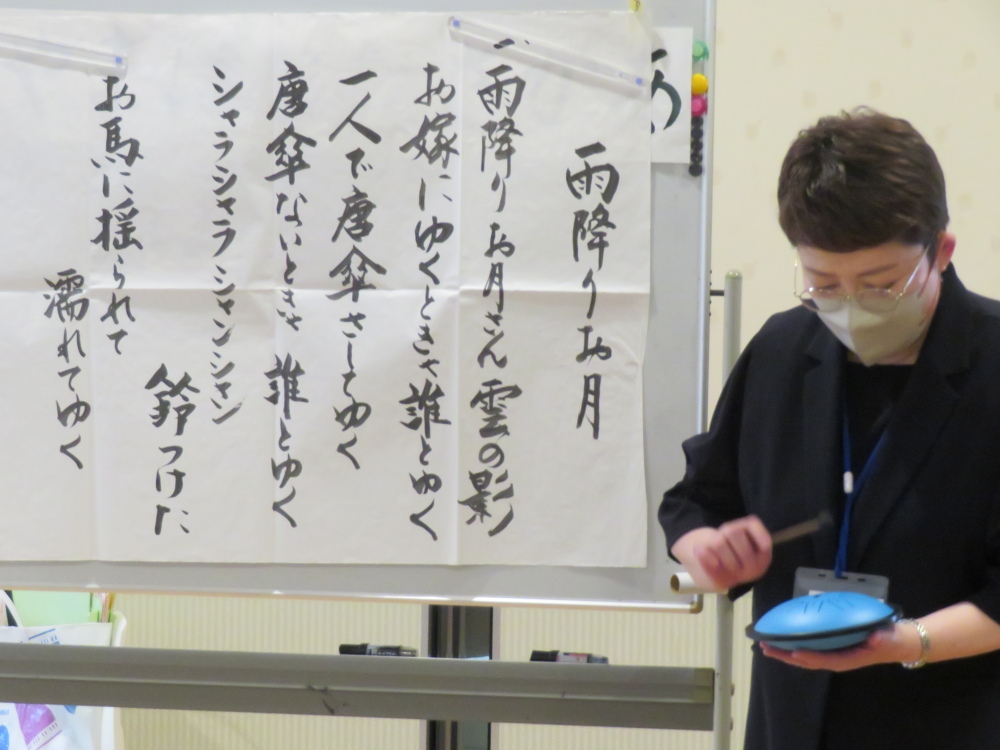 雨降りお月
雨降りお月さん 雲の影
お嫁にゆくときゃ 誰とゆく
一人で唐傘さしてゆく
唐傘ないときゃ 誰とゆく
シャラシャラ シャンシャン
鈴つけた
お馬に揺られて
濡れてゆく